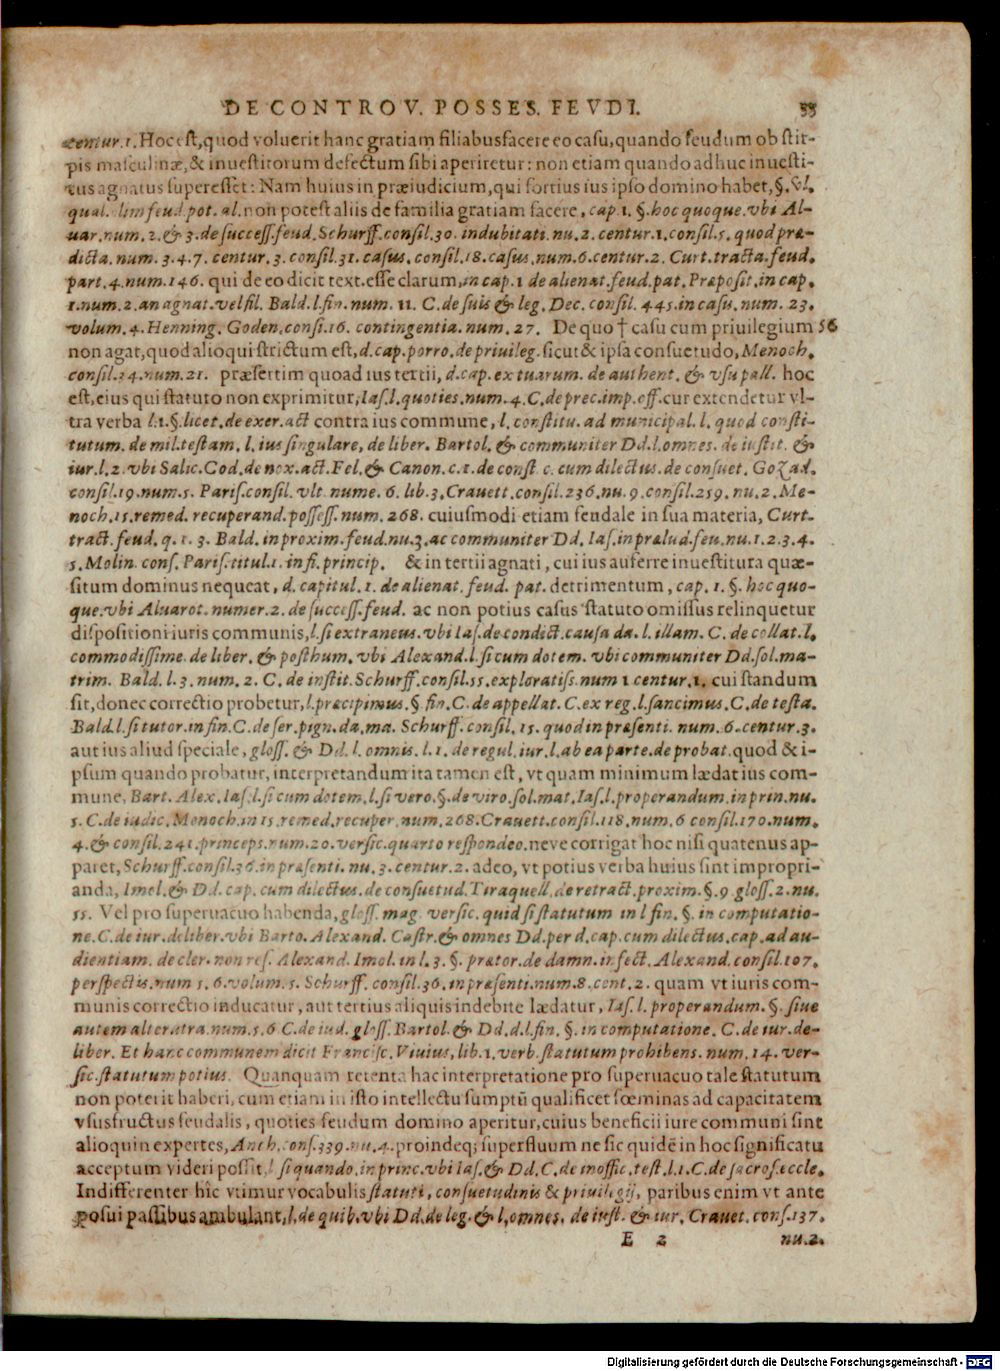 DE CONTROV. POSSES. FEVDI. 35
centur.1. Hoc est, quod voluerit hanc gratiam filiabus facere eo casu, quando feudum ob stir-
pis masculinæ, & inuestitorum defectum sibi aperiretur: non etiam quando adhuc inuesti-
tus agnatus superesset: Nam huius in præiudicium, qui fortius ius ipso domino habet, §. Vl.
qual. olim feud. pot. al. non potest aliis de familia gratiam facere, cap. 1. §. hoc quoque. vbi Al-
uar. num. 2. & 3. de success. feud. Schurff. consil. 30. indubitati. nu. 2. centur. 1. consil. 5. quod præ-
dicta. num. 3. 4. 7. centur. 3. consil. 31. casus. consil. 18. casus, num. 6. centur. 2. Curt. tracta. feud.
part. 4. num. 146. qui de eo dicit text. esse clarum, in cap. 1 de alienat. feud. pat. Præposit. in cap.
1. num. 2. an agnat. vel fil. Bald. l. fin. num. 11. C. de suis & leg. Dec. consil. 445. in casu. num. 23.
volum. 4. Henning. Goden. consi. 16. contingentia. num. 27. De quo † casu cum priuilegium 56
non agat, quod alioqui strictum est, d. cap. porro. de priuileg. sicut & ipsa consuetudo, Menoch.
consil. 24. num. 21. præsertim quoad ius tertii, d. cap. ex tuarum. de authent. & vsu pall. hoc
est, eius qui statuto non exprimitur, Ias. l. quoties. num. 4. C. de prec. imp. off. cur extendetur vl-
tra verba l. 1. §. licet. de exer. act contra ius commune, l. constitu. ad municipal. l. quod consti-
tutum. de mil. testam. l. ius singulare, de liber. Bartol. & communiter Dd. l. omnes. de iustit. &
iur. l. 2. vbi Salic. Cod. de nox. act. Fel. & Canon. c. 1. de const c. cum dilectus. de consuet. Gozad.
consil. 19. num. 5. Paris. consil. vlt. nume. 6. lib. 3. Crauett. consil. 236. nu. 9. consil. 259. nu. 2. Me-
noch. 15. remed. recuperand. possess. num. 268. cuiusmodi etiam feudale in sua materia, Curt.
tract. feud. q. 1. 3. Bald. in proxim. feud. nu. 3. ac communiter Dd. Ias. in prælud. feu. nu. 1. 2. 3. 4.
5. Molin. cons. Paris. titul. 1. in fi. princip. & in tertii agnati, cui ius auferre inuestitura quæ-
situm dominus nequeat, d. capitul. 1. de alienat. feud. pat. detrimentum, cap. 1. §. hoc quo-
que. vbi Aluarot. numer. 2. de success. feud. ac non potius casus statuto omissus relinquetur
dispositioni iuris communis, l. si extraneus. vbi Ias. de condict. causa da. l. illam. C. de collat. l.
commodissime. de liber. & posthum. vbi Alexand. l. si cum dotem. vbi communiter Dd. sol. ma-
trim. Bald. l. 3. num. 2. C. de instit. Schurff. consil. 55. exploratiss. num 1 centur. 1. cui standum
sit, donec correctio probetur, l. præcipimus. § fin. C. de appellat. C. ex reg. l. sancimus. C. de testa.
Bald. l. si tutor. in fin. C. de ser. pign. da. ma. Schurff. consil. 15. quod in præsenti. num. 6. centur. 3.
aut ius aliud speciale, gloss. & Dd. l. omnis. l. 1. de regul. iur. l. ab ea parte. de probat. quod & i-
psum quando probatur, interpretandum ita tamen est, vt quam minimum lædat ius com-
mune, Bart. Alex. Ias. l. si cum dotem. l. si vero. §. de viro. sol. mat. Ias. l. properandum. in prin. nu.
5. C. de iudic. Menoch. in 15. remed. recuper. num. 268. Crauett. consil. 118. num. 6 consil. 170. num.
4. & consil. 241. princeps. num. 20. versic. quarto respondeo. neve corrigat hoc nisi quatenus ap-
paret, Schurff. consil. 36. in præsenti. nu. 3. centur. 2. adeo, vt potius verba huius sint impropri-
anda, Imol. & Dd. cap. cum dilectus. de consuetud. Tiraquell. de retract. proxim. §. 9 gloss. 2. nu.
55. Vel pro superuacuo habenda, gloss. mag. versic. quid si statutum in l fin. §. in computatio-
ne. C. de iur. deliber. vbi Barto. Alexand. Castr. & omnes Dd. per d. cap. cum dilectus, cap. ad au-
dientiam. de cler. non res. Alexand. Imol. in l. 3. §. prætor. de damn. infect. Alexand. consil. 107.
perspectis. num 5. 6. volum. 5. Schurff. consil. 36. in præsenti. num. 8. cent. 2. quam vt iuris com-
munis correctio inducatur, aut tertius aliquis indebite lædatur, Ias. l. properandum. §. siue
autem alterutra. num. 5. 6 C. de iud. gloss. Bartol. & Dd. d. l. fin. §. in computatione. C. de iur. de-
liber. Et hanc communem dicit Francisc. Viuius, lib. 1. verb. statutum prohibens. num. 14. ver-
sic. statutum potius. Quanquam retenta hac interpretatione pro superuacuo tale statutum
non poterit haberi, cum etiam in isto intellectu sumptũ qualificet fœminas ad capacitatem
vsusfructus feudalis, quoties feudum domino aperitur, cuius beneficii iure communi sint
alioquin expertes, Anch. cons. 339. nu. 4. proindeq; superfluum ne sic quidẽ in hoc significatu
acceptum videri possit. l si quando. in princ. vbi Ias. & Dd. C. de inoffic. test. l. 1. C. de sacros. eccle.
Indifferenter hic vtimur vocabulis statuti, consuetudinis & priuilegij, paribus enim vt ante
posui passibus ambulant, l. de quib. vbi Dd. de leg. & l. omnes. de iust. & iur. Crauet. cons. 137.
E 2 nu. 2.
Digitalisierung gefördert durch die Deutsche Forschungsgemeinschaft - DFG